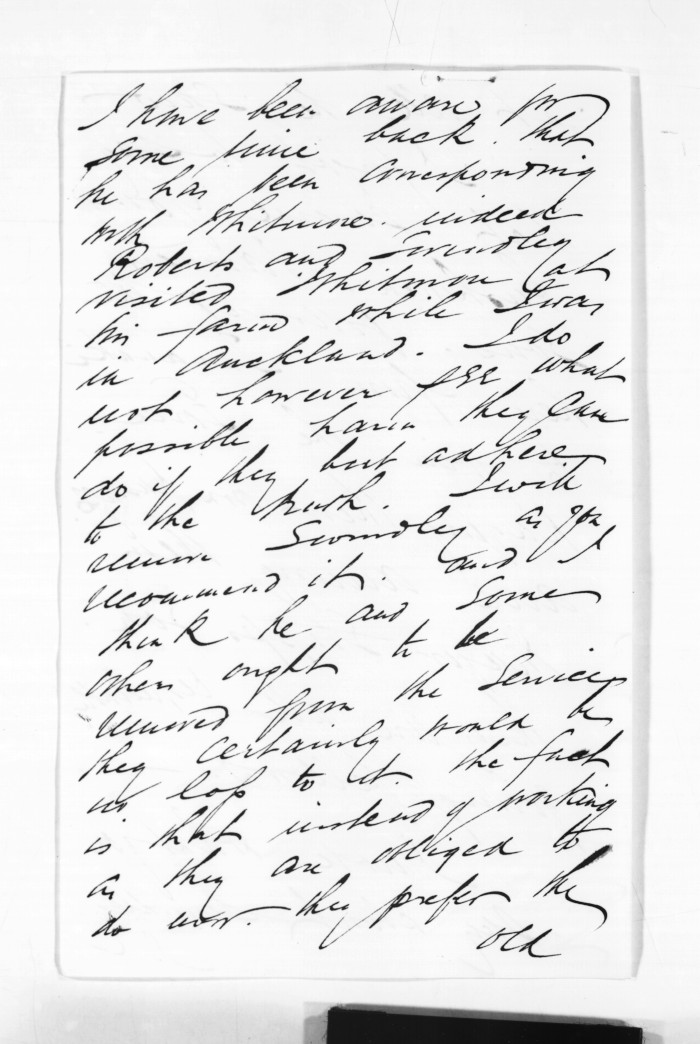 I have been aware for
some time back. that
he has been corresponding
with Whitmore. indeed
Roberts and Swindley
visited Whitmore at
his farm while I was
in Auckland. I do
not however see what
possible harm they can
do if they but adhere
to the truth. I will
remove Swindley as you
recommend it. and I
think he and some
others ought to be
removed from the Service
they certainly would be
no loss to it. the fact
is that instead of working
as they are obliged to
do now. they prefer the
old